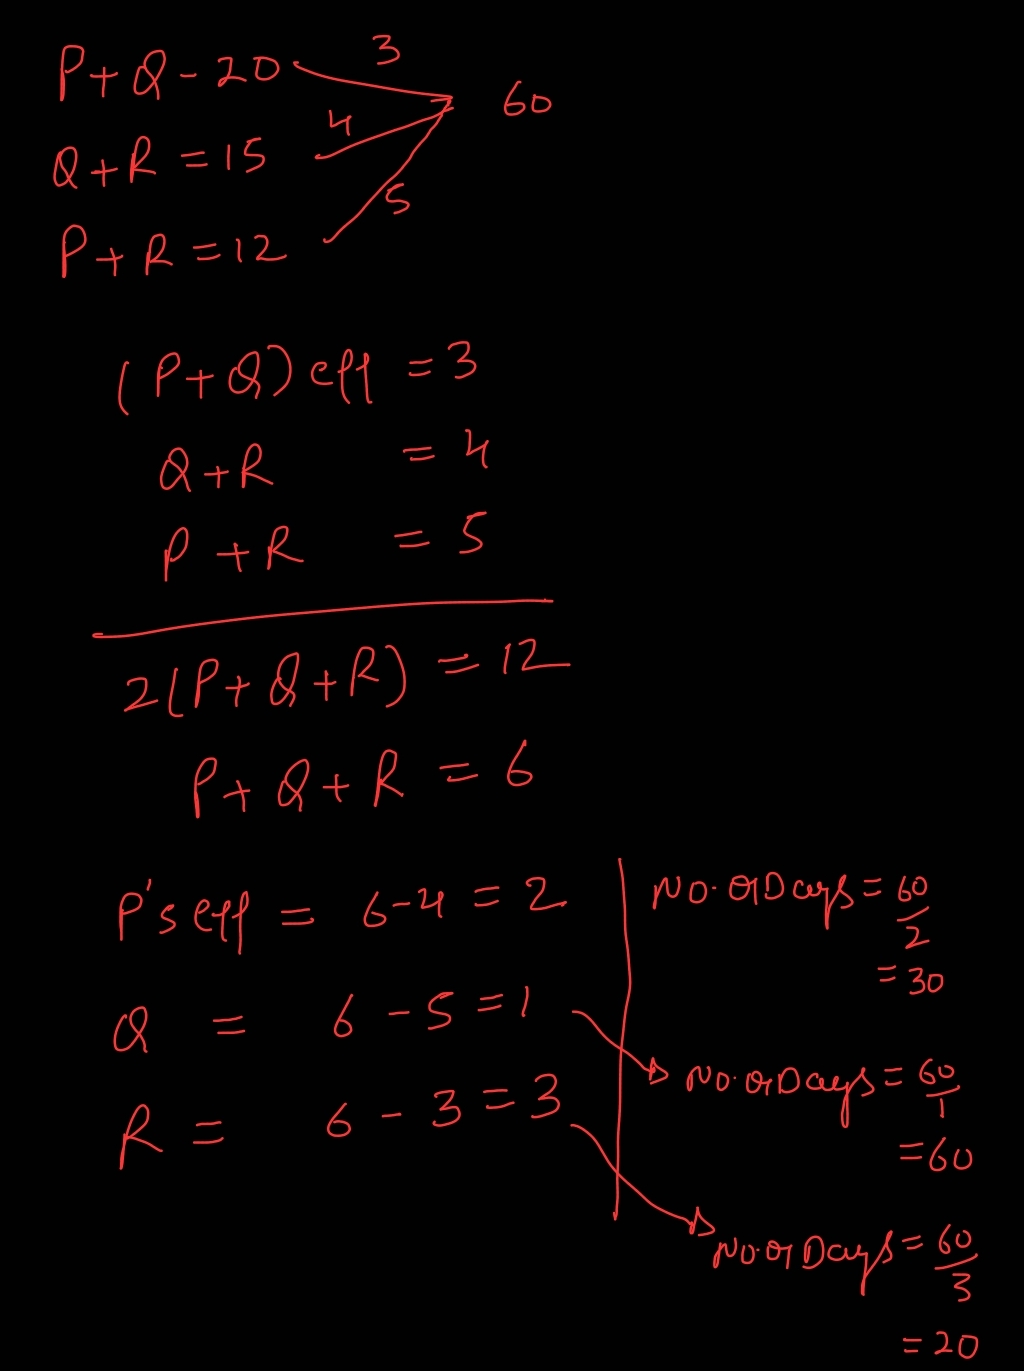 P+Q-20 3
60
Q+R=15 4
P+R=12 5
(P+Q) eff = 3
Q+R = 4
P+R = 5
2(P+Q+R) = 12
P+Q+R = 6
P's eff = 6-4 = 2
No. of Days = 60/2
= 30
Q = 6-5 = 1
No. of Days = 60/1
= 60
R = 6-3 = 3
No. of Days = 60/3
= 20